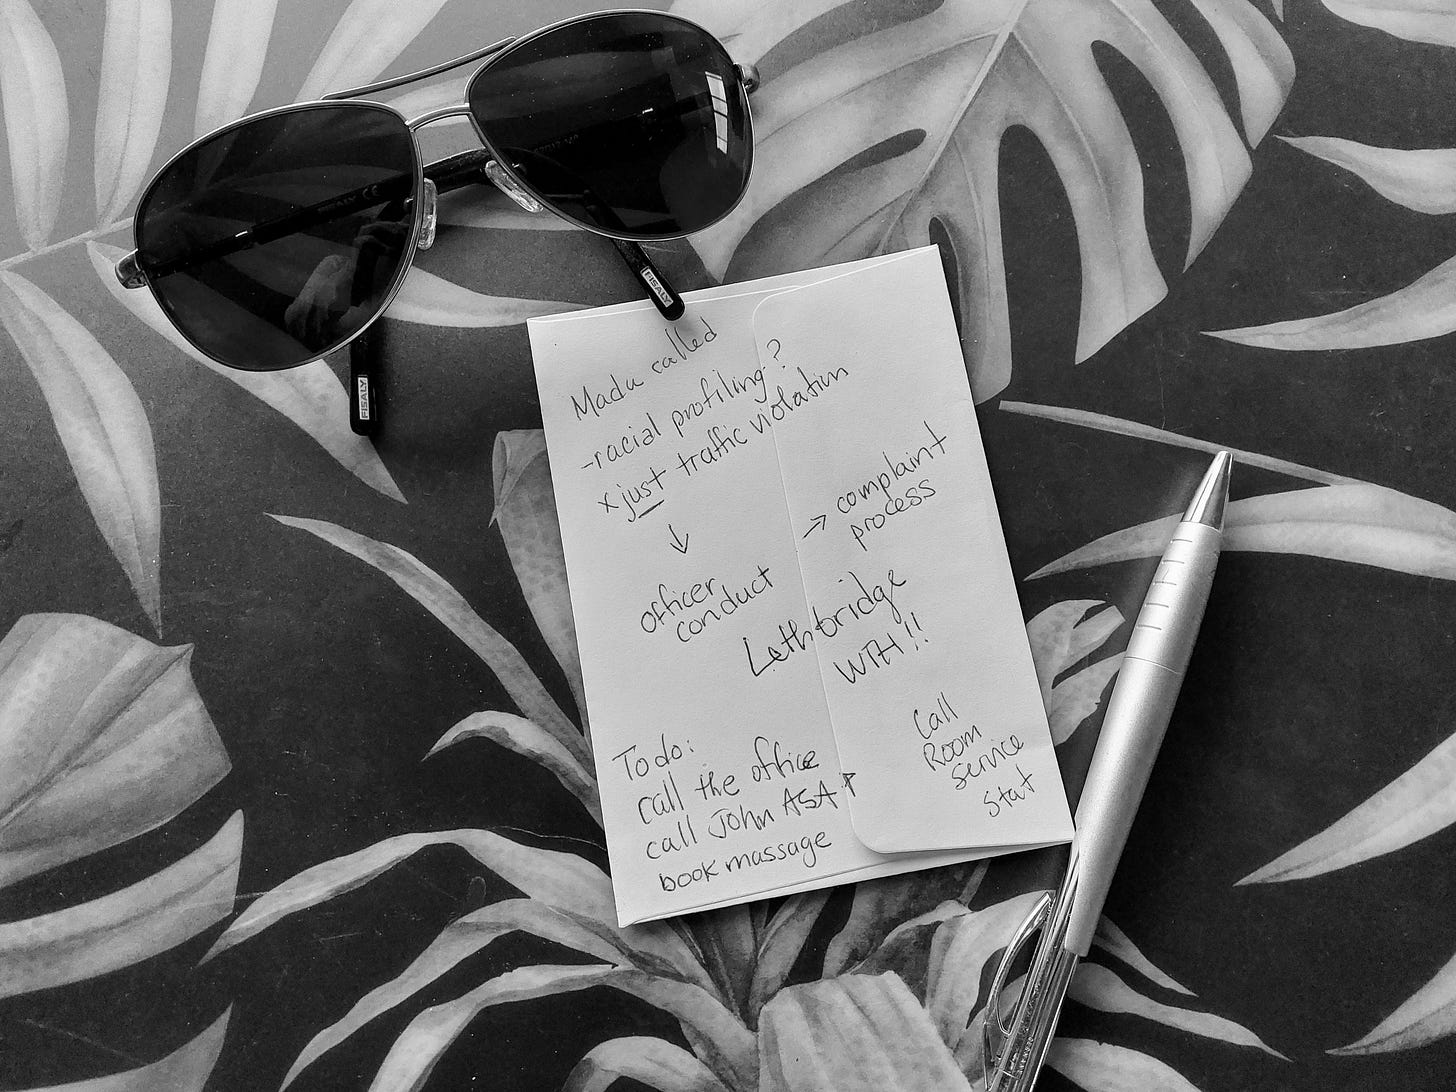 FISALY CE
FISALY
FISALY
Madu called
-racial profiling?
x just traffic violation
↓
officer
conduct
→ complaint
process
Lethbridge
WTH!!
To do:
call the office
call John ASAP
book massage
Call
Room
Service
Stat